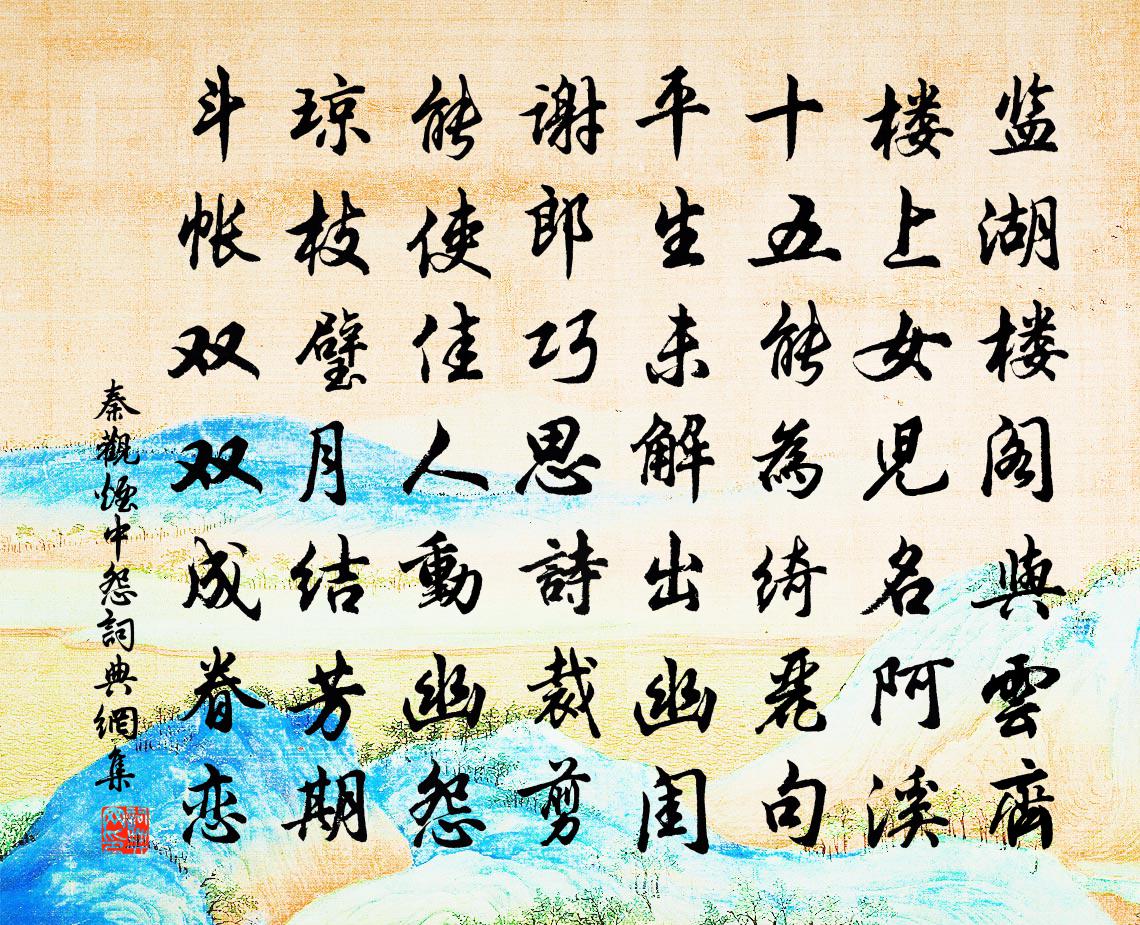 监湖楼阁與雲齊
楼上女児名阿溪
十五能為绮麗句
平生未解出幽闺
谢郎巧思詩裁剪
能使佳人動幽怨
琼枝璧月结芳期
斗帐双双成眷恋
秦觀煙中怨詞典網集